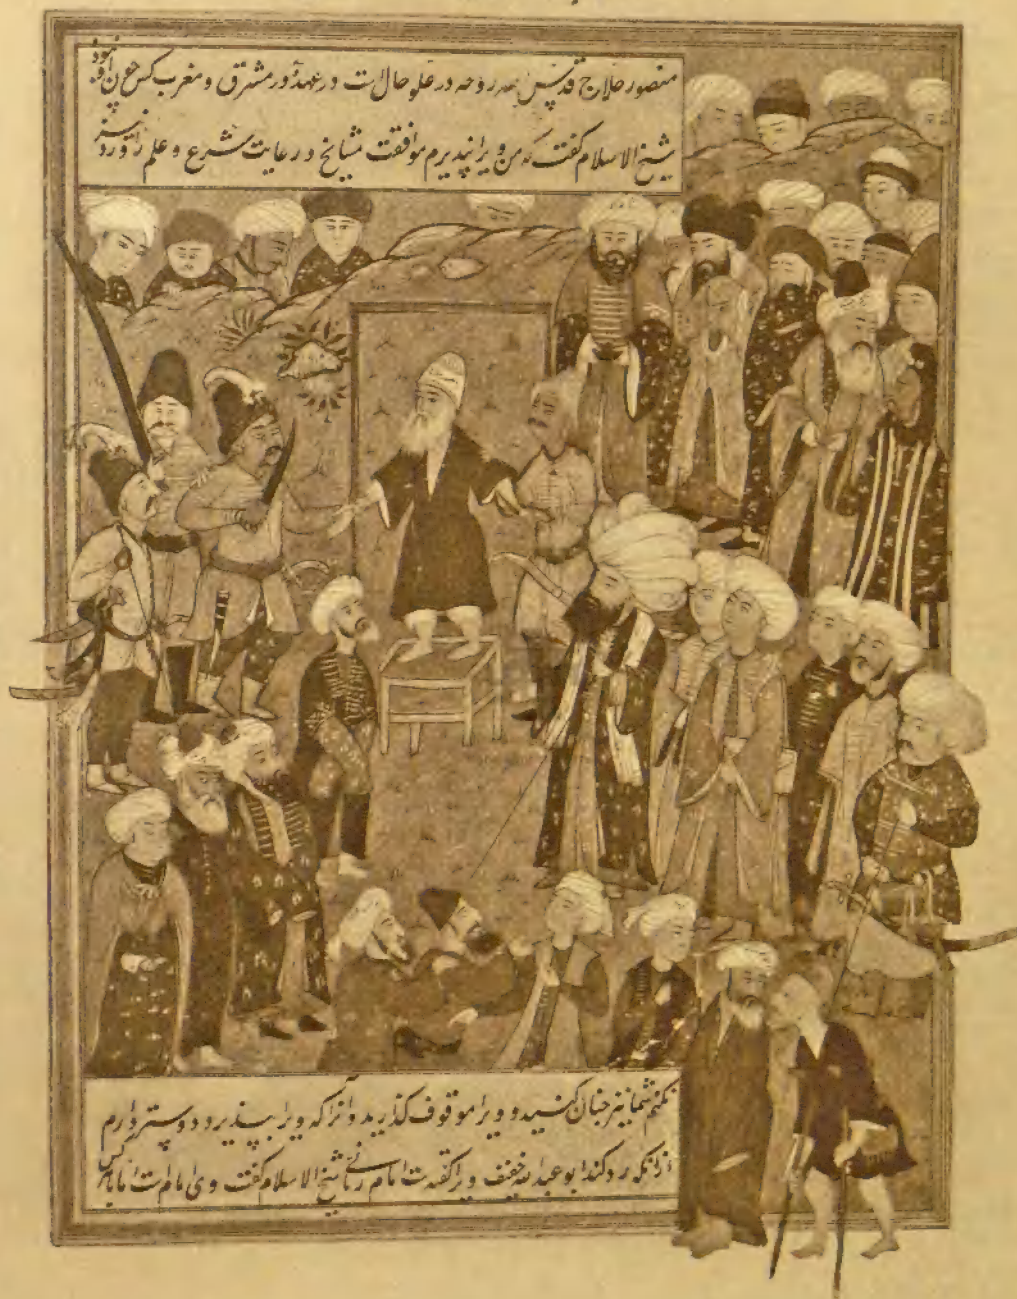 منصور حلاج قدس الله روحه در علو حالات در عهد او در مشرق و مغرب کس چون او نبود
شیخ الاسلام کفت که من ویرا نپذیرم موافقت مشایخ و رعایت شرع و علم را و رد نیز
نکنم شما نیز چنان کنید و ویرا موقوف کذارید و آنرا که ویرا بپذیرد دوستر دارم
از انکه رد کند ابو عبدالله خفیف ویرا کفته است امام ربانی شیخ الاسلام کفت وی امام است اما با هر کس